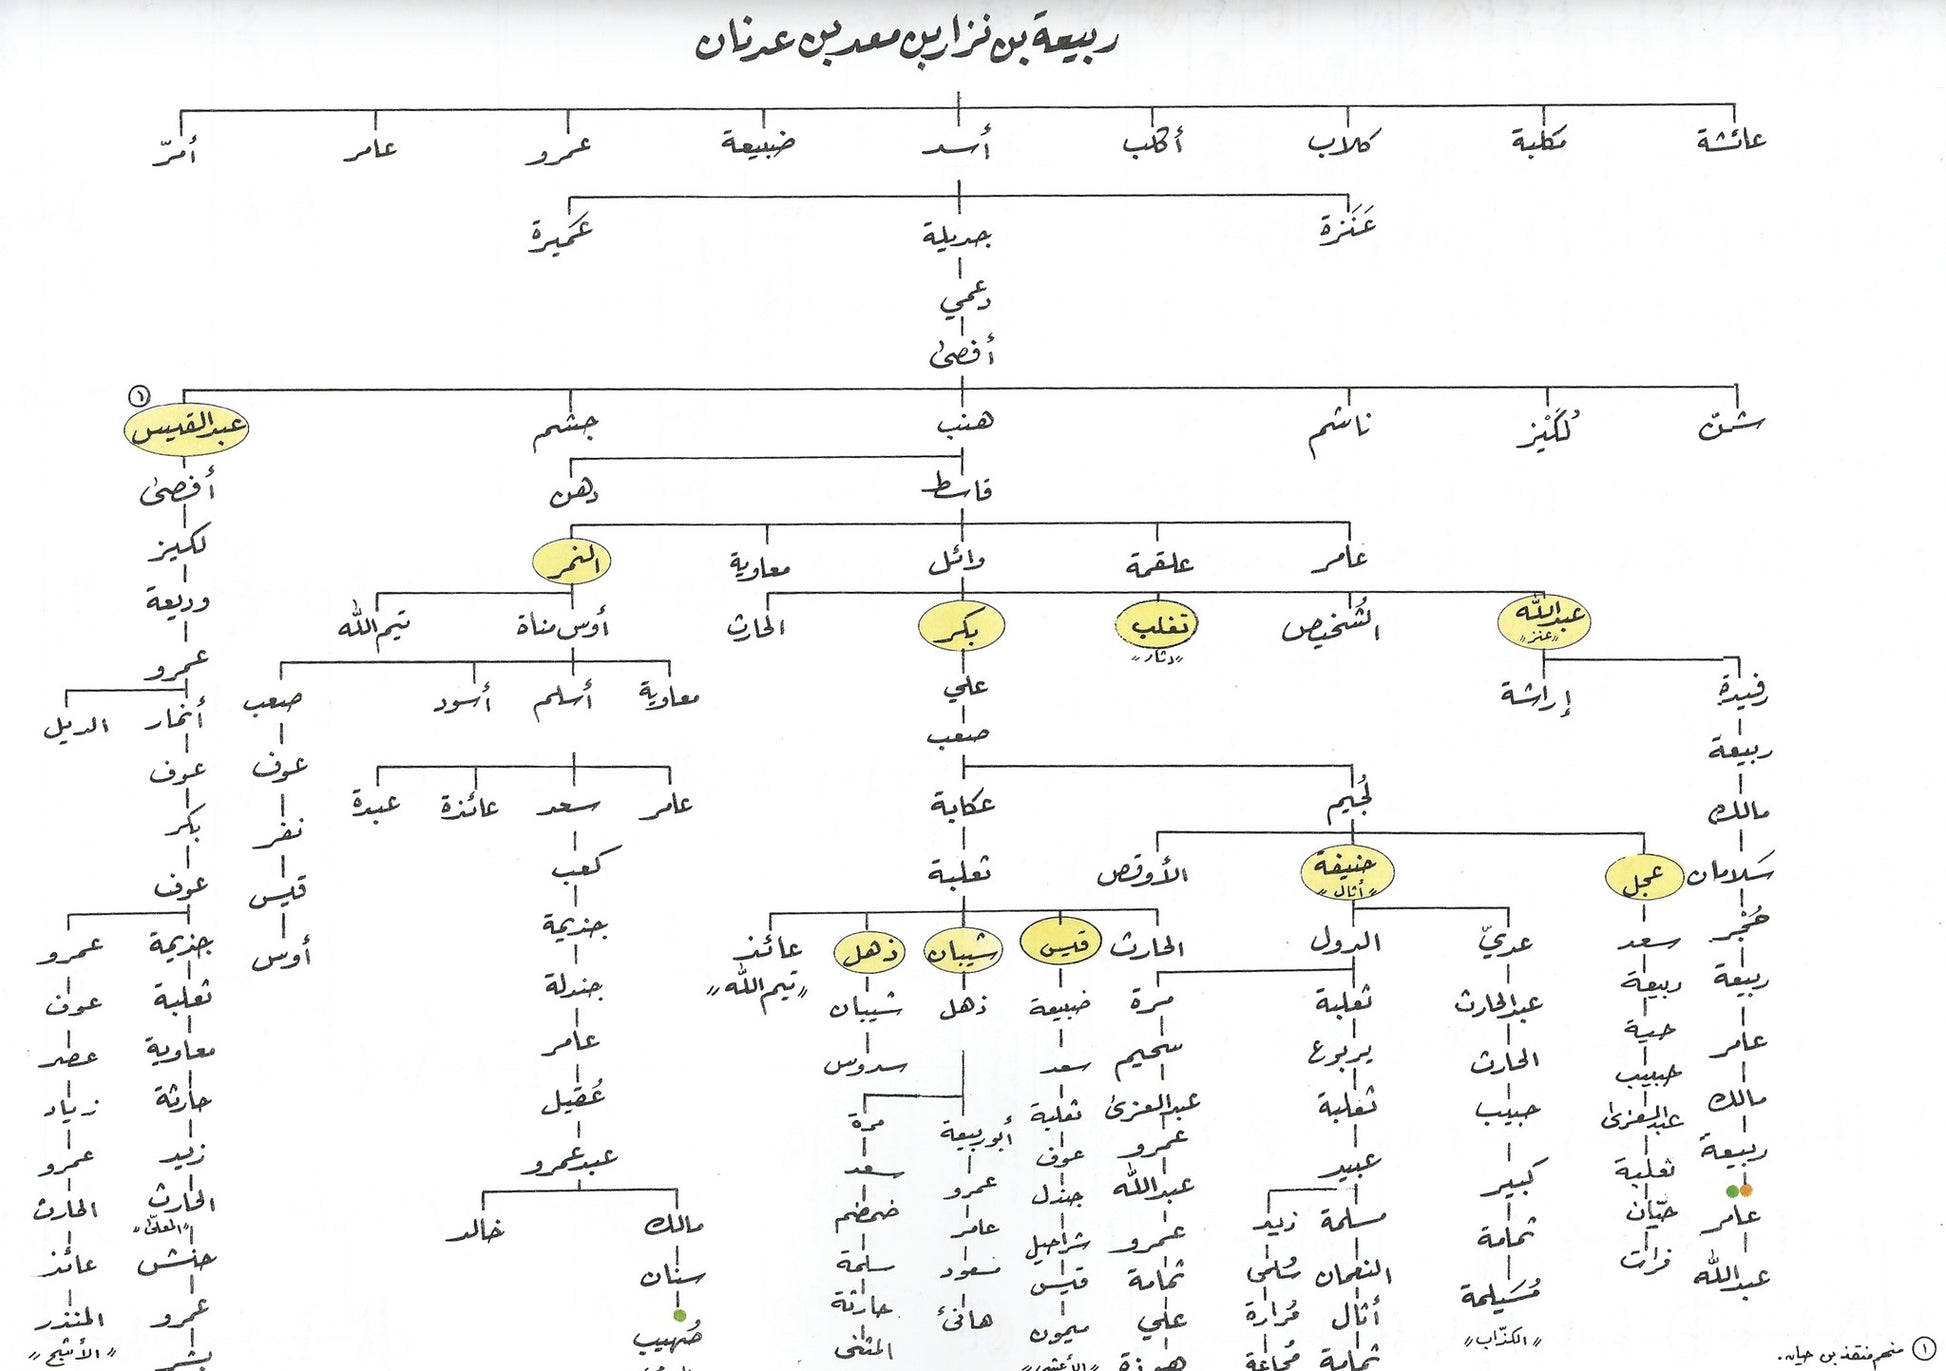 ربيعة بن نزار بن معد بن عدنان
عائشة مكلبة كلاب أكلب أسد ضبيعة عمرو عامر أمرّ
عَنَزة جديلة عَميرة
دعمي
أفصى
شنّ لُكَيْز ناشم هنب جشم عبد القيس ①
قاسط دهن أفصى
عامر علقمة وائل معاوية النمر لكيز
عبدالله الشُخيص تغلب بكر الحارث أوس مناة تيم الله وديعة
"عنز" "دثار"
رفيدة إراشة علي معاوية أسلم أسود صعب عمرو
ربيعة صعب عوف أنمار الديل
مالك لُجيم عكابة عامر سعد عائذة عبدة نفر عوف
بكر
سلامان عجل حنيفة الأوقص ثعلبة كعب قيس عوف
"أثال"
حُجْر سعد عديّ الدول الحارث قيس شيبان ذهل عائذ جذيمة أوس جذيمة عمرو
"تيم الله"
ربيعة ربيعة عبدالحارث ثعلبة مرة ضبيعة ذهل شيبان جندلة ثعلبة عوف
عامر حية الحارث يربوع سحيم سعد سدوس عامر معاوية عصر
مالك حبيب حبيب ثعلبة عبدالعزى ثعلبة أبو ربيعة مرة عُقيل حارثة زياد
ربيعة عبدالعزى كبير عبيد عمرو عوف عمرو سعد عبدعمرو زيد عمرو
عامر ثعلبة ثمامة مسلمة زيد عبدالله جندل عامر ضمضم مالك خالد الحارث الحارث
"المعلى"
عبدالله حيّان مُسَيلمة النعمان سُلمى عمرو شراحيل مسعود سلمة سنان حنش عائذ
فرات "الكذّاب" أثال مُرارة ثمامة قيس هانئ حارثة صُهيب عمرو المنذر
ثمامة مُجاعة علي ميمون المثنى بشر "الأشج"
هوذة "الأعشى"
① منهم منقذ بن حيان.